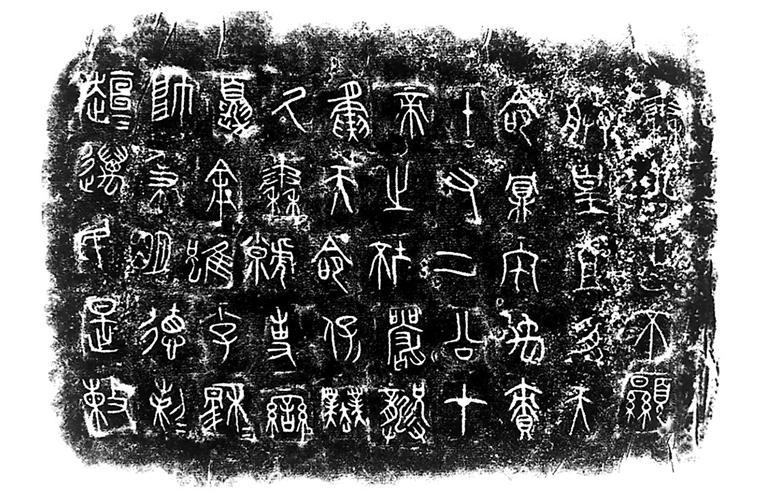 秦公曰不顯
朕皇且受天
命鼏宅禹責
十又二公才
帝之坏嚴龏
夤天命保業
氒秦虩事䜌
夏余雖小子穆=
帥秉明德剌=
趄=萬民是敕